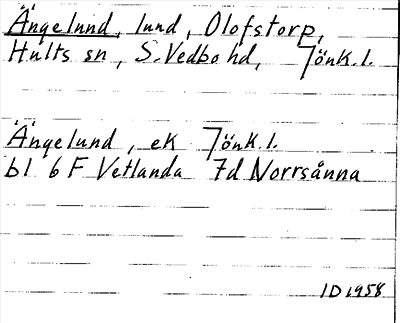 Ängelund, lund, Olofstorp,
Hults sn, S. Vedbo hd, Jönk. l.
Ängelund, ek Jönk. l.
bl 6 F Vetlanda 7d Norrsånna
ID 1958